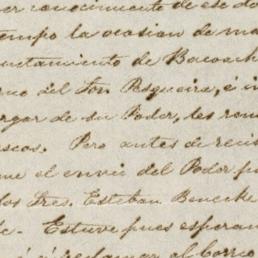 er conocimiento de ese do
tiempo la ocasion de ma
untamiento de Bacoach
rno del Son Pesqueira, é i
argar de su Poder, les rem
Pero antes de reci
me el envio del Poder pa
los Sres. Esteban Benecke
Estuve pues esperan
reclamar al Correo